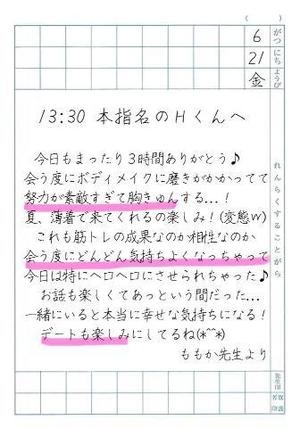 ( )
6 がつ
21 にち
金 ようび
れんらくすることがら
13:30 本指名のHくんへ
今日もまったり3時間ありがとう♪
会う度にボディメイクに磨きがかかってて
努力が素敵すぎて胸きゅんする…!
夏、薄着で来てくれるの楽しみ!(変態w)
これも筋トレの成果なのか相性なのか
会う度にどんどん気持ちよくなっちゃって
今日は特にヘロヘロにさせられちゃった♪
お話も楽しくてあっという間だった…
一緒にいると本当に幸せな気持ちになる!
デートも楽しみにしてるね(*^^*)
ももか先生より